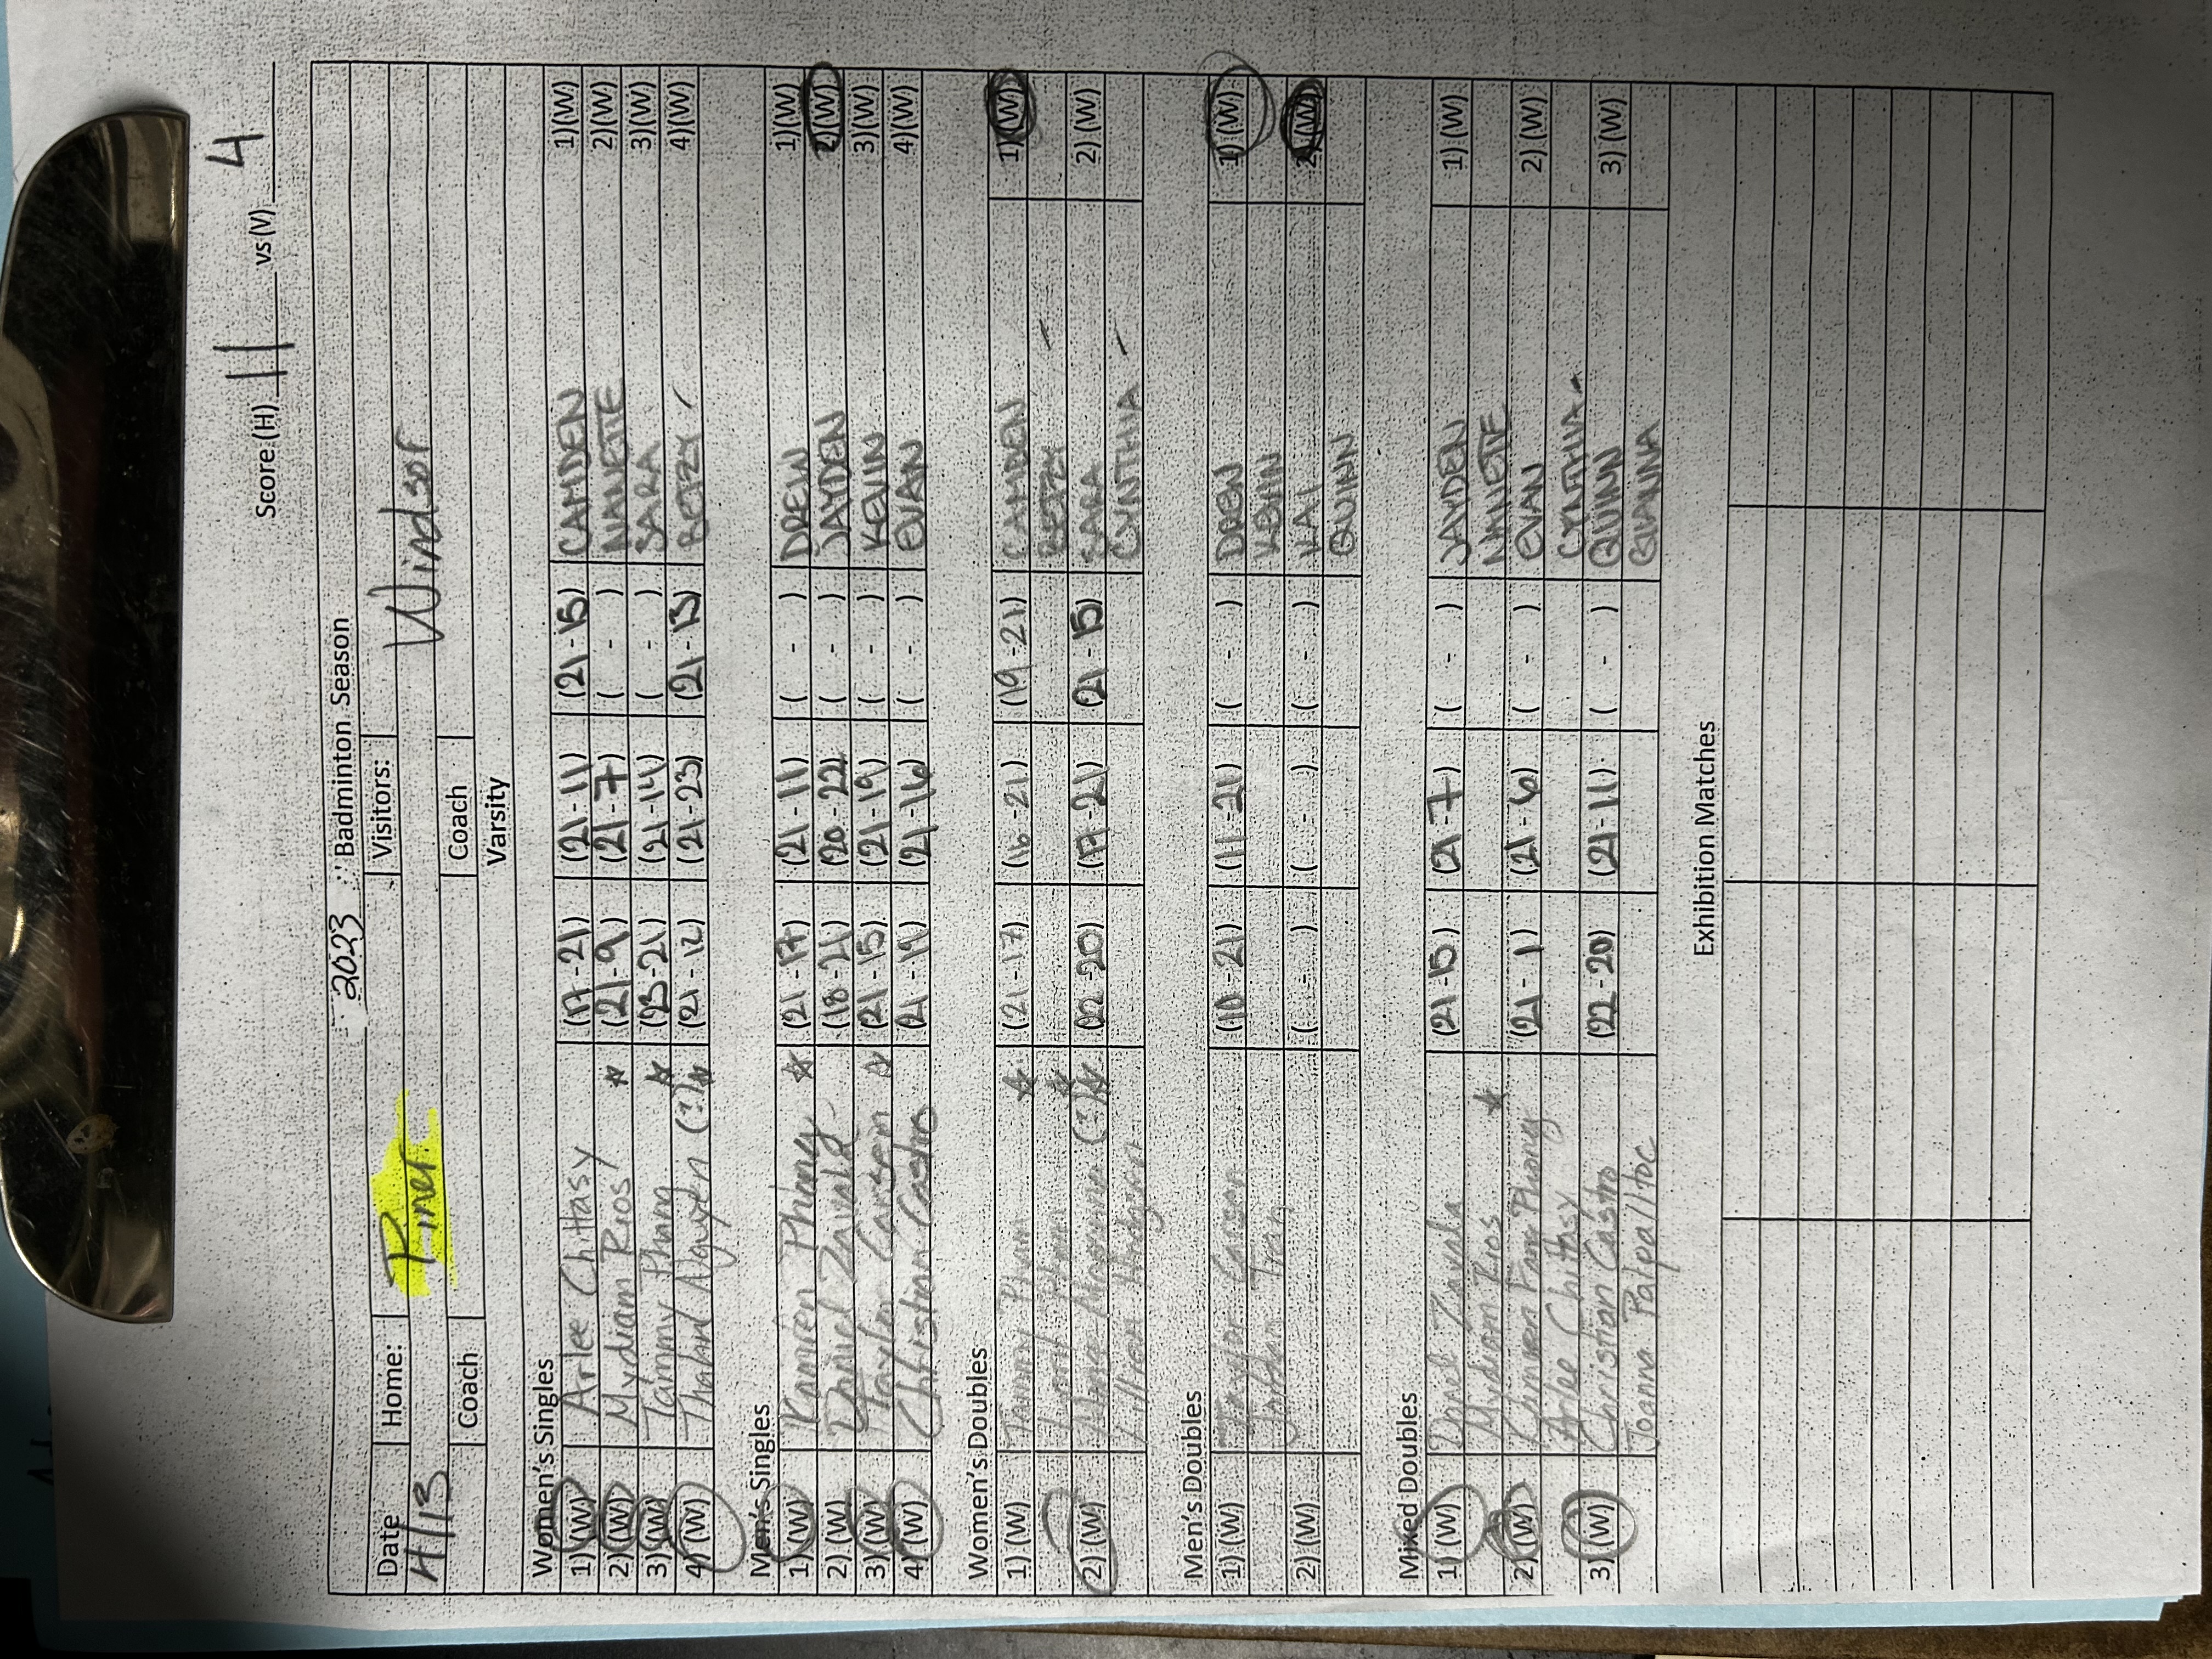 Score (H) 11 vs (V) 4
2023 Badminton Season
Date Home: Piner Visitors: Windsor
4/13
Coach Coach
Varsity
Women's Singles
1) (W) Arlee Chittasy (17-21) (21-11) (21-15) CAMDEN 1)(W)
2) (W) Mydiam Rios (21-9) (21-7) ( - ) NANETTE 2)(W)
3) (W) Tammy Phang (23-21) (21-14) ( - ) SARA 3)(W)
4) (W) Nguyen (?) (21-12) (21-23) (21-13) BETZY 4)(W)
Men's Singles
1) (W) Phong (21-17) (21-11) ( - ) DREW 1)(W)
2) (W) Daniel Zavala (18-21) (20-22) ( - ) JAYDEN 2)(W)
3) (W) Taylor Carsen (21-15) (21-19) ( - ) KEVIN 3)(W)
4) (W) Christian Castro (21-19) (21-16) ( - ) EVAN 4)(W)
Women's Doubles
1) (W) (21-17) (16-21) (19-21) CAMDEN 1) (W)
BETZY
2) (W) (?) (22-20) (17-21) (21-15) SARA 2) (W)
CYNTHIA
Men's Doubles
1) (W) Taylor Carsen (10-21) (11-21) ( - ) DREW 1) (W)
Jordan Tran KEVIN
2) (W) ( - ) ( - ) ( - ) KAI 2) (W)
QUINN
Mixed Doubles
1) (W) Zavala (21-15) (21-7) ( - ) JAYDEN 1) (W)
Mydiam Rios NANETTE
2) (W) Phong (21-1) (21-6) ( - ) EVAN 2) (W)
Arlee Chittasy CYNTHIA
3) (W) Christian Castro (22-20) (21-11) ( - ) QUINN 3) (W)
Joanna GIANNA
Exhibition Matches